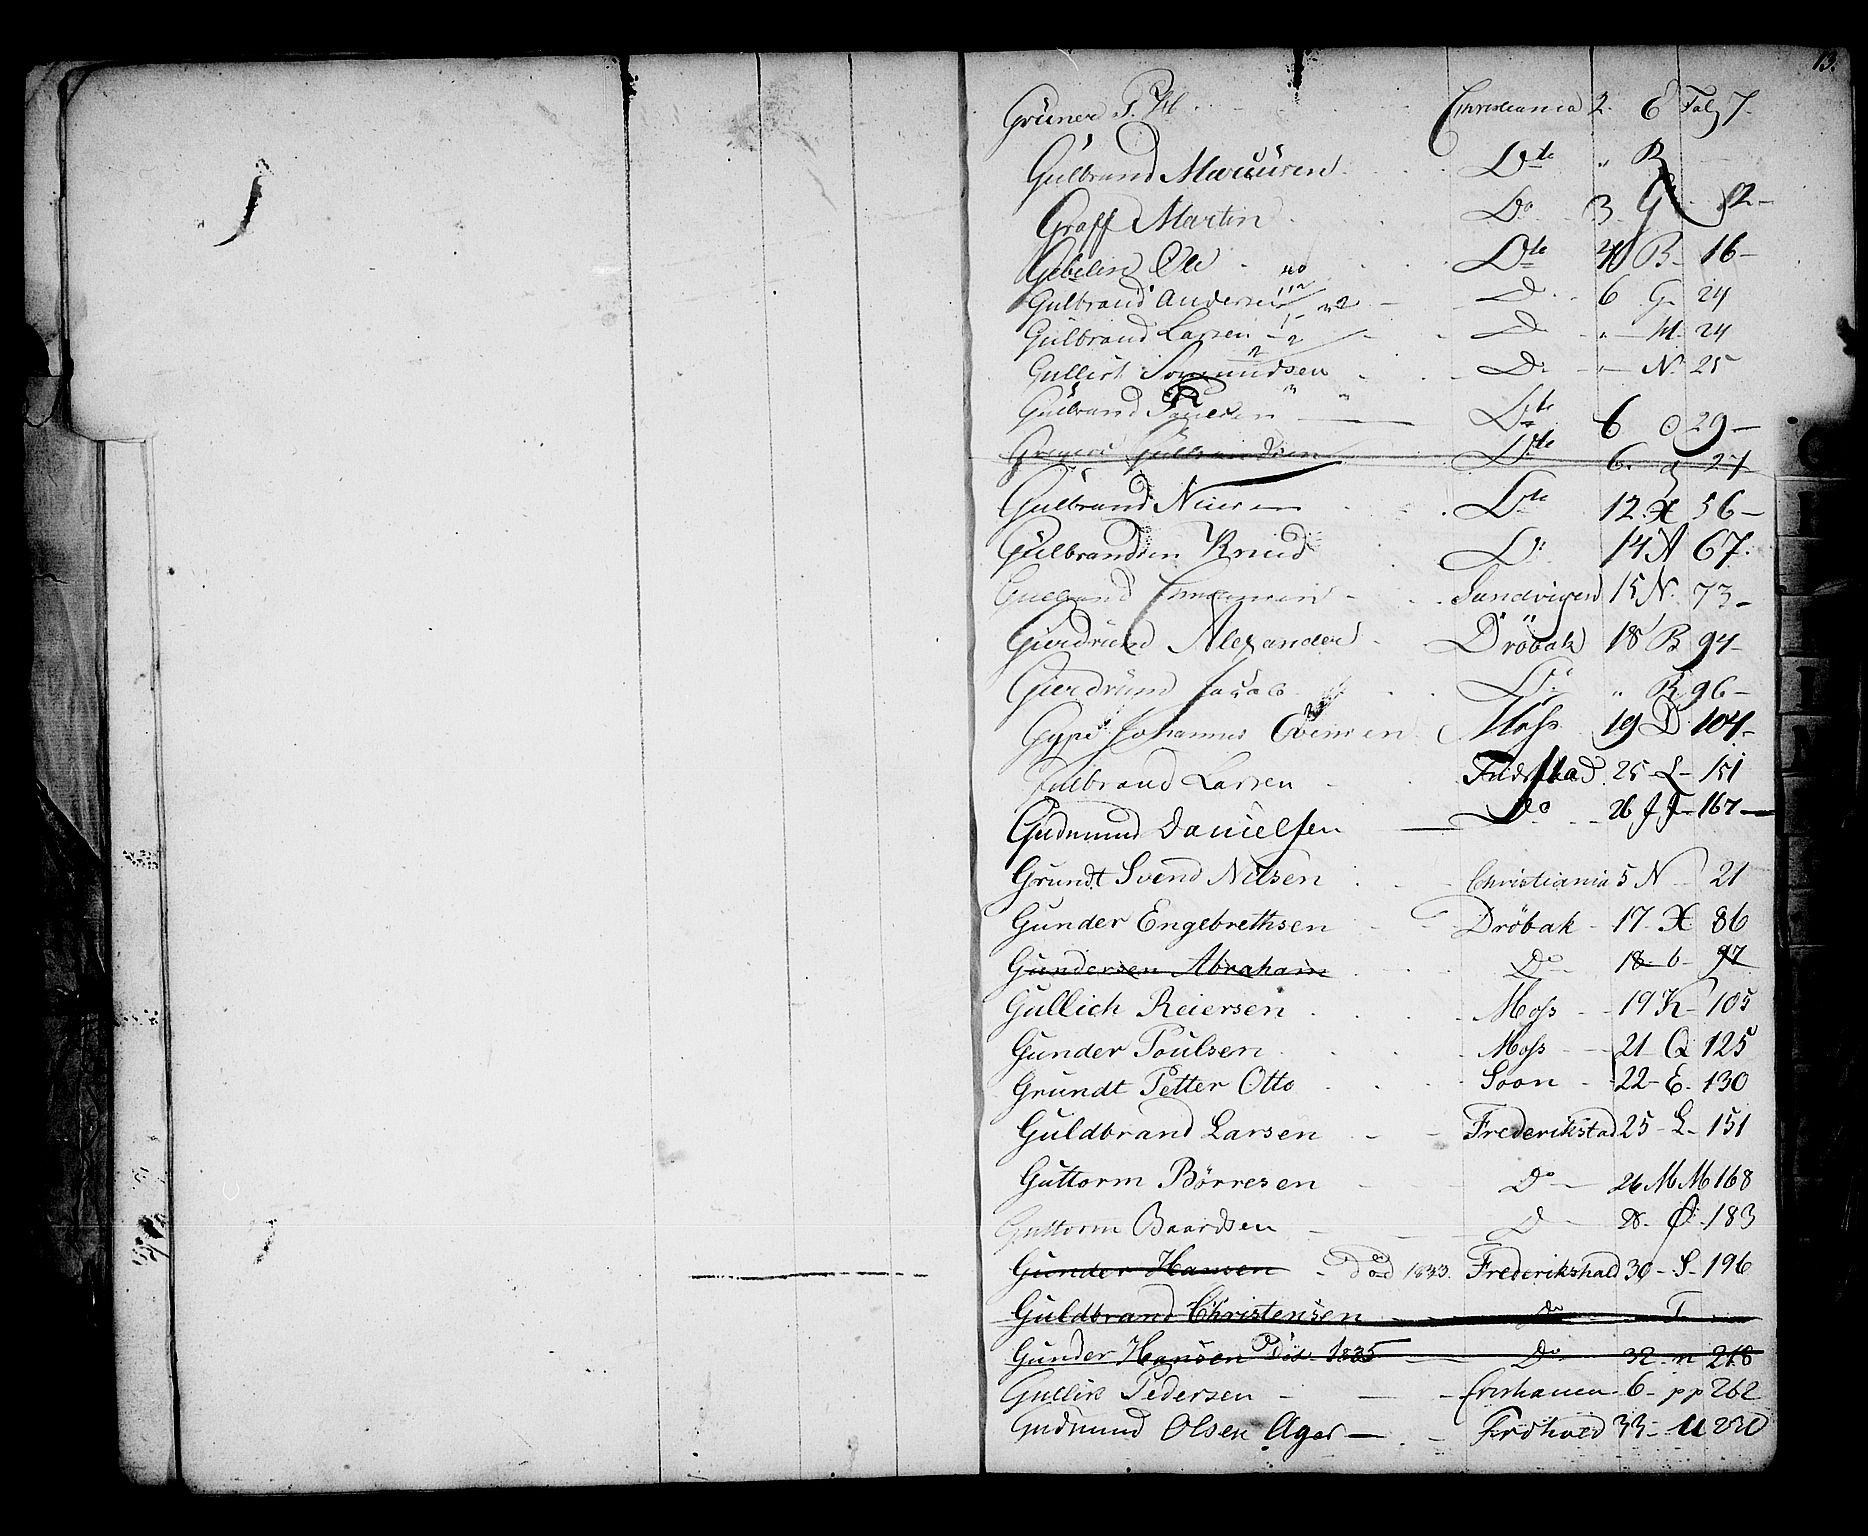 13.
Grüner P. M. Christiania 2. E Fol 7.
Gülbrand Dto " R
Graff Martin Do 3 G 12
Gebelin Ole Dto 40 B 16
Gulbrand Andersen D. 6 G 24
Gülbrand Larsen D " M. 24
Gullik Do " N. 25
Gülbrand Paulsen Dto 6 O 29
Gülbrandsen Dto 6. q 27
Gülbrand Dto 12 X 56
Gülbrandsen Knud Do 14 A 67.
Gulbrand Sandvigen 15 N. 73
Gierdrund Alexander Dröbak 18 B 94
Gierdrund Jacob Do " R 96
Gype Johannes Evensen Moss 19 D 104
Gulbrand Larsen Fridrstad 25 L 151
Gudmund Danielsen Do 26 JJ 167
Grundt Svend Nilsen Christiania 5 N 21
Gunder Engebrethsen Dröbak 17 X 86
Gundersen Abraham Do 18 b 97
Gullich Reiersen Moss 19 K 105
Gunder Poulsen Moss 21 Q 125
Grundt Petter Otto Soon 22 E. 130
Guldbrand Larsen Frederikstad 25 L 151
Guttorm Börresen Do 26 MM 168
Guttorm Baardsen D 28. Ø. 183
Gunder Hansen Död 1833. Frederikshald 30 S 196
Guldbrand Christensen Do T
Gunder Hansen Död 1835 Do 32 n 218
Gullik Pedersen 6 pp 262
Gudmund Olsen Ager Frdhald 33 U 230